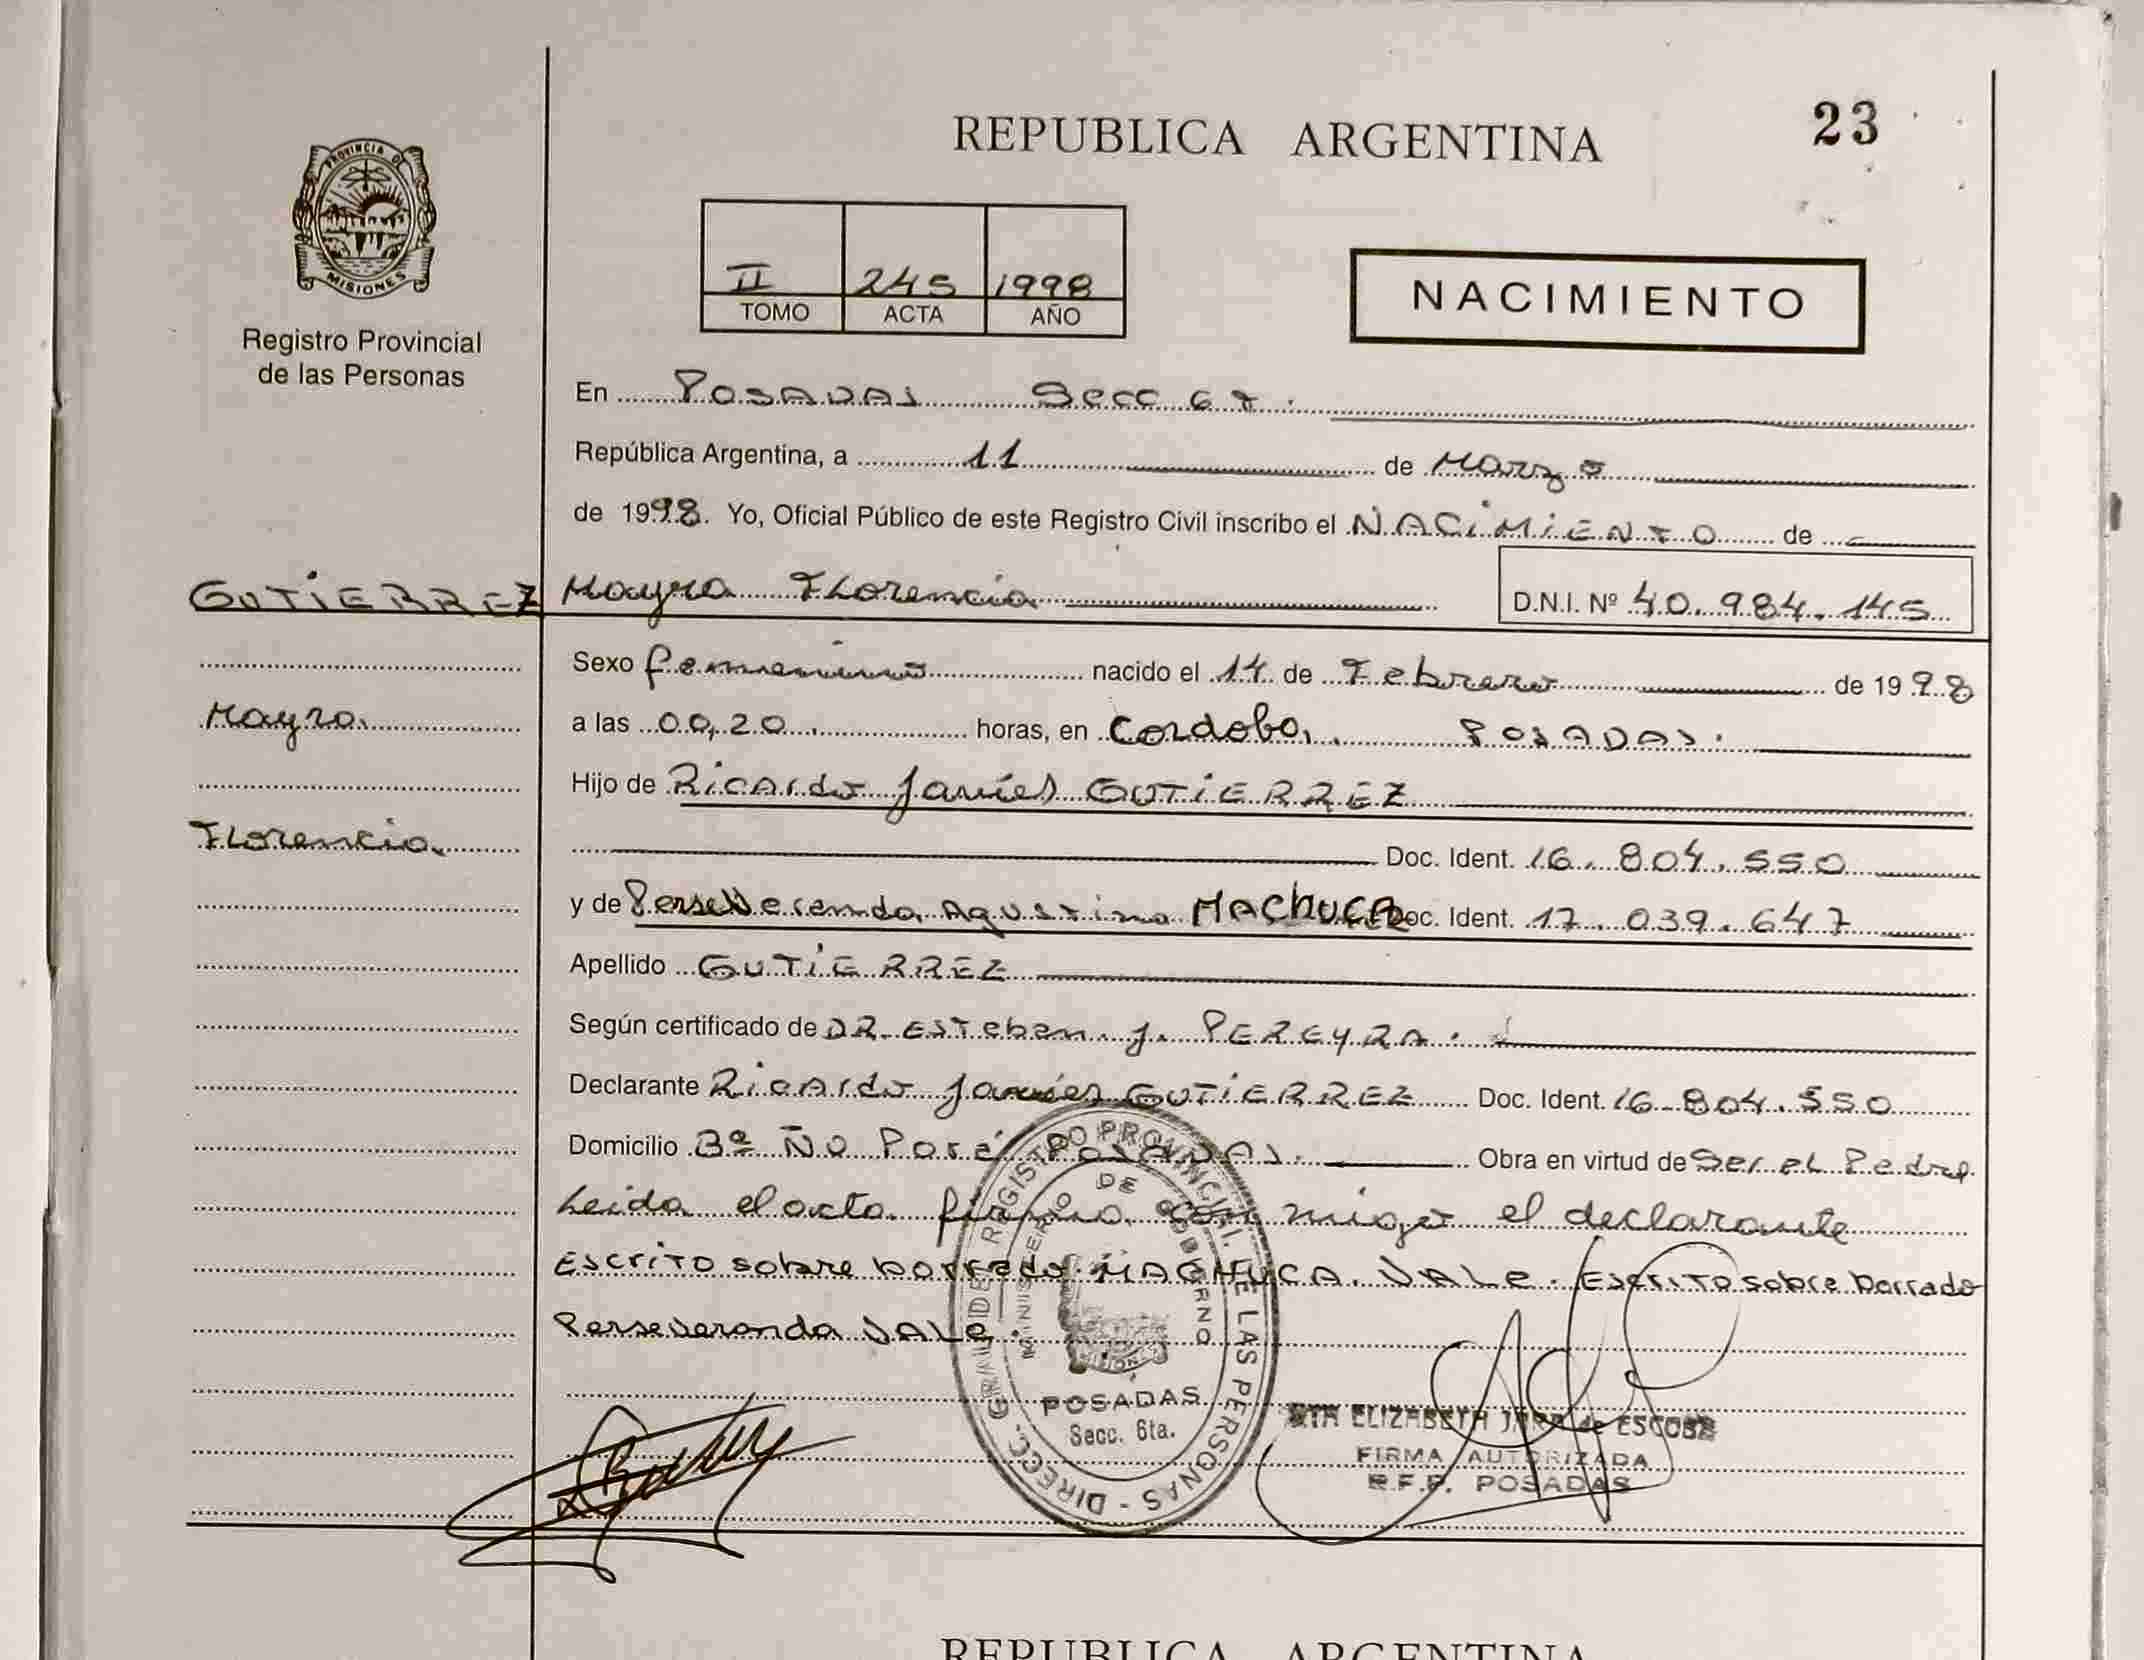 REPUBLICA ARGENTINA
23
PROVINCIA DE
MISIONES
Registro Provincial
de las Personas
II 245 1998
TOMO ACTA AÑO
NACIMIENTO
En Posadas Secc 6ta.
República Argentina, a 11 de Marzo
de 1998. Yo, Oficial Público de este Registro Civil inscribo el NACIMIENTO de
GUTIERREZ Mayra Florencia D.N.I. Nº 40.984.145
Sexo femenino nacido el 14 de Febrero de 1998
Mayra a las 00,20 horas, en Cordoba, POSADAS.
Hijo de Ricardo Javier GUTIERREZ
Florencia Doc. Ident. 16.804.550
y de Perseveranda Agustina MACHUCA Doc. Ident. 17.039.647
Apellido GUTIERREZ
Según certificado de DR. Esteban J. PEREYRA.
Declarante Ricardo Javier GUTIERREZ Doc. Ident. 16.804.550
Domicilio Bº Ñu Porá POSADAS. Obra en virtud de Ser el Padre.
Leida el acta firma conmigo el declarante
Escrito sobre borrado MACHUCA. VALE. Escrito sobre borrado
Perseveranda VALE.
DIRECC. GRAL. DE REGISTRO PROVINCIAL DE LAS PERSONAS
MINISTERIO DE GOBIERNO
POSADAS
Secc. 6ta.
ELIZABETH JARA de ESCOBAR
FIRMA AUTORIZADA
R.P.P. POSADAS
REPUBLICA ARGENTINA